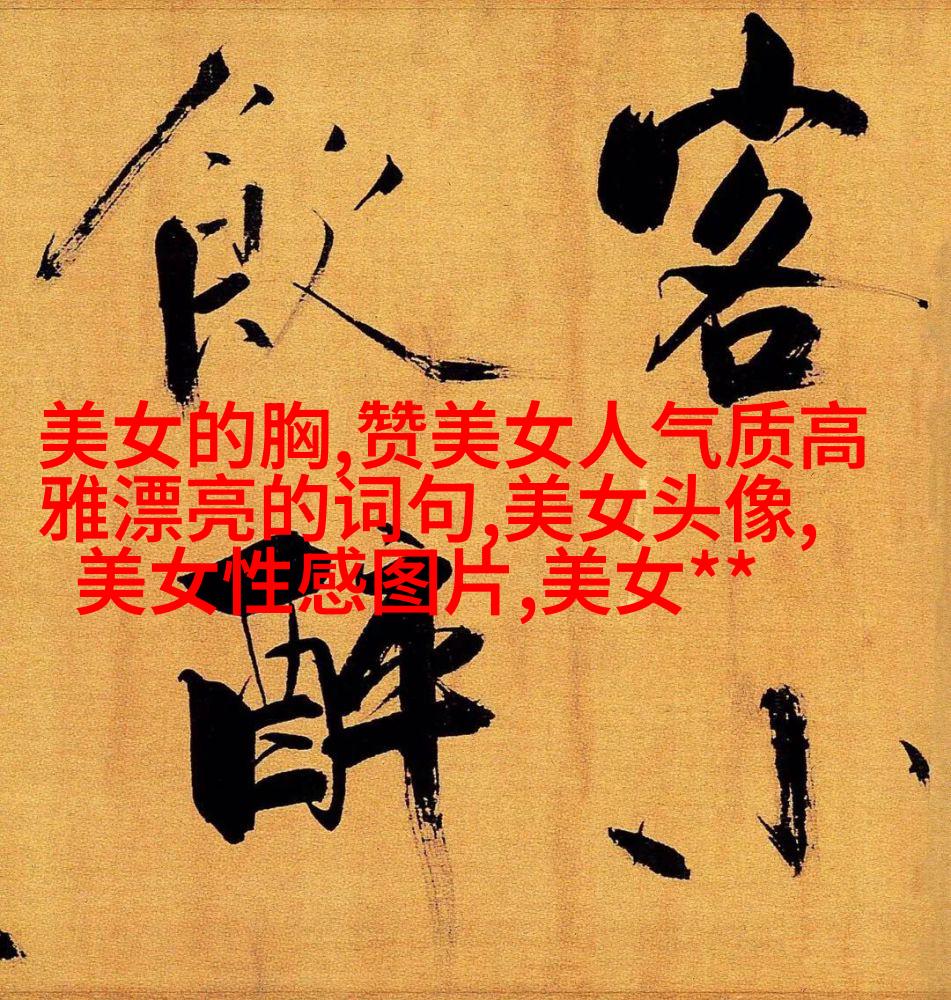 客小
飲醉
美女的胸,赞美女人气质高
雅漂亮的词句,美女头像,
美女性感图片,美女**